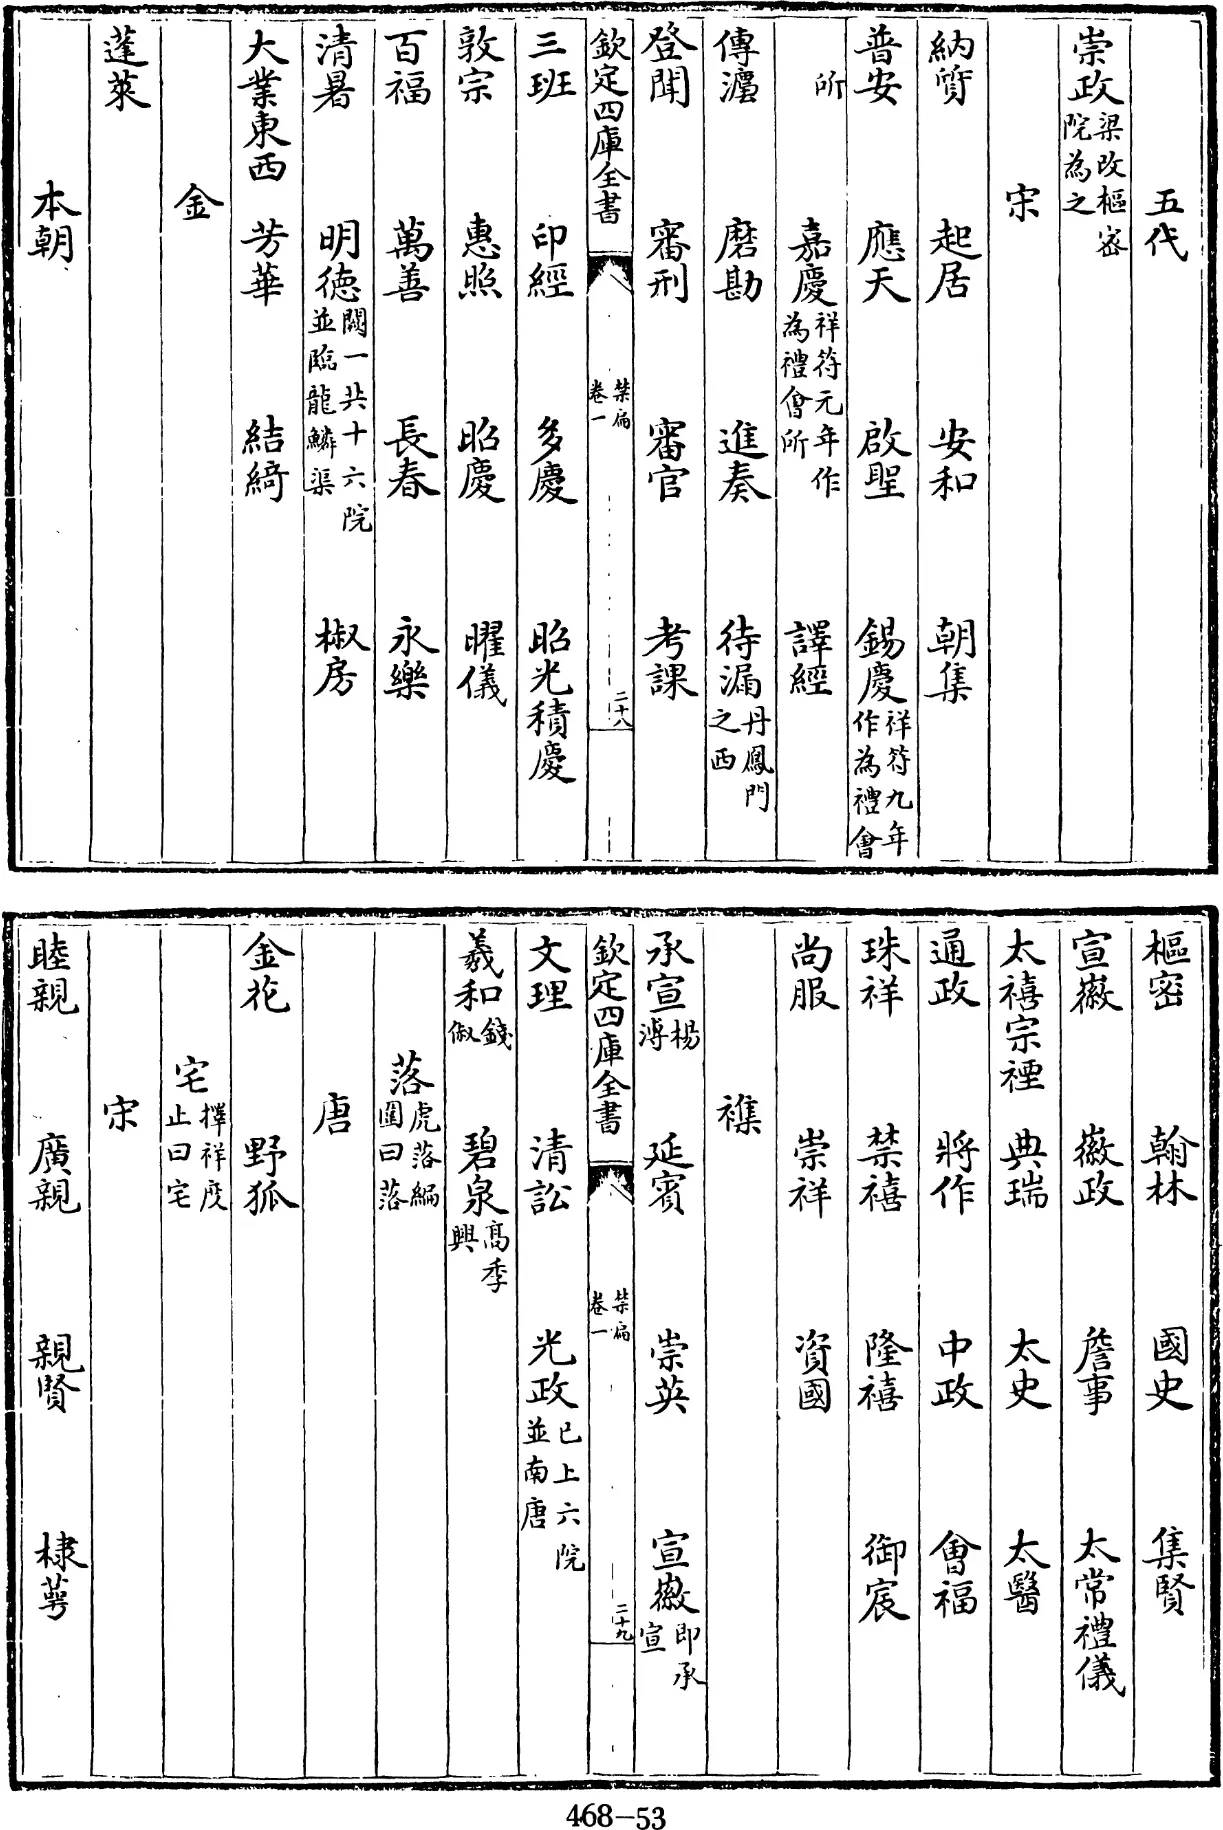 五代
崇政梁改樞密院為之
宋
納質 起居 安和 朝集
普安 應天 啟聖 錫慶祥符九年作為禮會
所 嘉慶祥符元年作為禮會所 譯經
傳瀍 磨勘 進奏 待漏丹鳳門之西
登聞 審刑 審官 考課
欽定四庫全書 禁扁卷一 二十八
三班 印經 多慶 昭光積慶
敦宗 惠照 昭慶 曜儀
百福 萬善 長春 永樂
清暑 明德闕一共十六院並臨龍鱗渠 椒房
大業東西 芳華 結綺
金
蓬萊
本朝
樞密 翰林 國史 集賢
宣徽 徽政 詹事 太常禮儀
太禧宗禋 典瑞 太史 太醫
通政 將作 中政 會福
珠祥 禁禧 隆禧 御宸
尚服 崇祥 資國
襍
承宣楊溥 延賓 崇英 宣徽即承宣
欽定四庫全書 禁扁卷一 二十九
文理 清訟 光政已上六院並南唐
羲和錢俶 碧泉高季興
落虎落編圍曰落
唐
金花 野狐
宅擇祥度止曰宅
宋
睦親 廣親 親賢 棣蕚
468-53